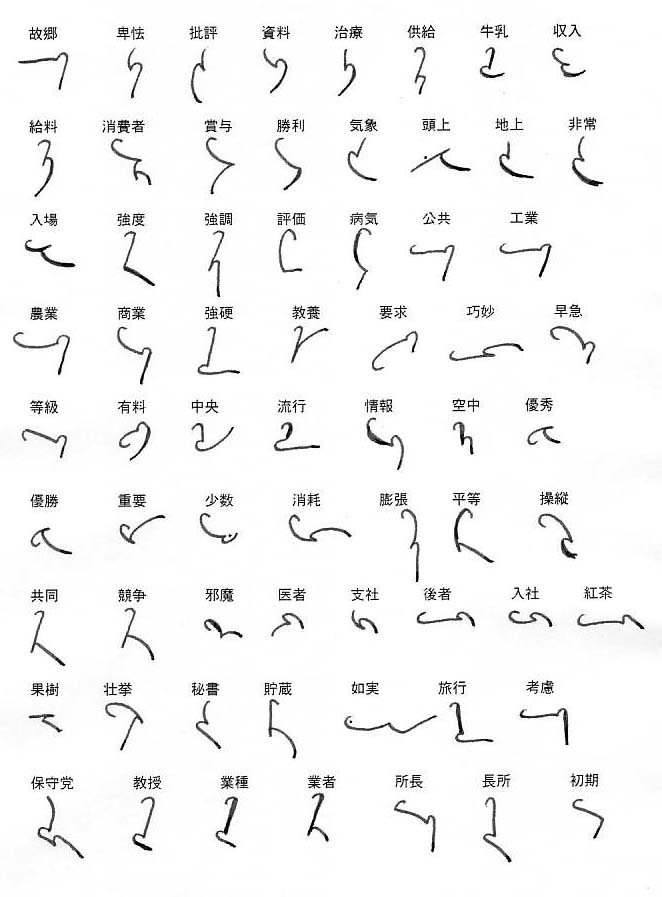 故郷 卑怯 批評 資料 治療 供給 牛乳 収入
給料 消費者 賞与 勝利 気象 頭上 地上 非常
入場 強度 強調 評価 病気 公共 工業
農業 商業 強硬 教養 要求 巧妙 早急
等級 有料 中央 流行 情報 空中 優秀
優勝 重要 少数 消耗 膨張 平等 操縦
共同 競争 邪魔 医者 支社 後者 入社 紅茶
果樹 壮挙 秘書 貯蔵 如実 旅行 考慮
保守党 教授 業種 業者 所長 長所 初期